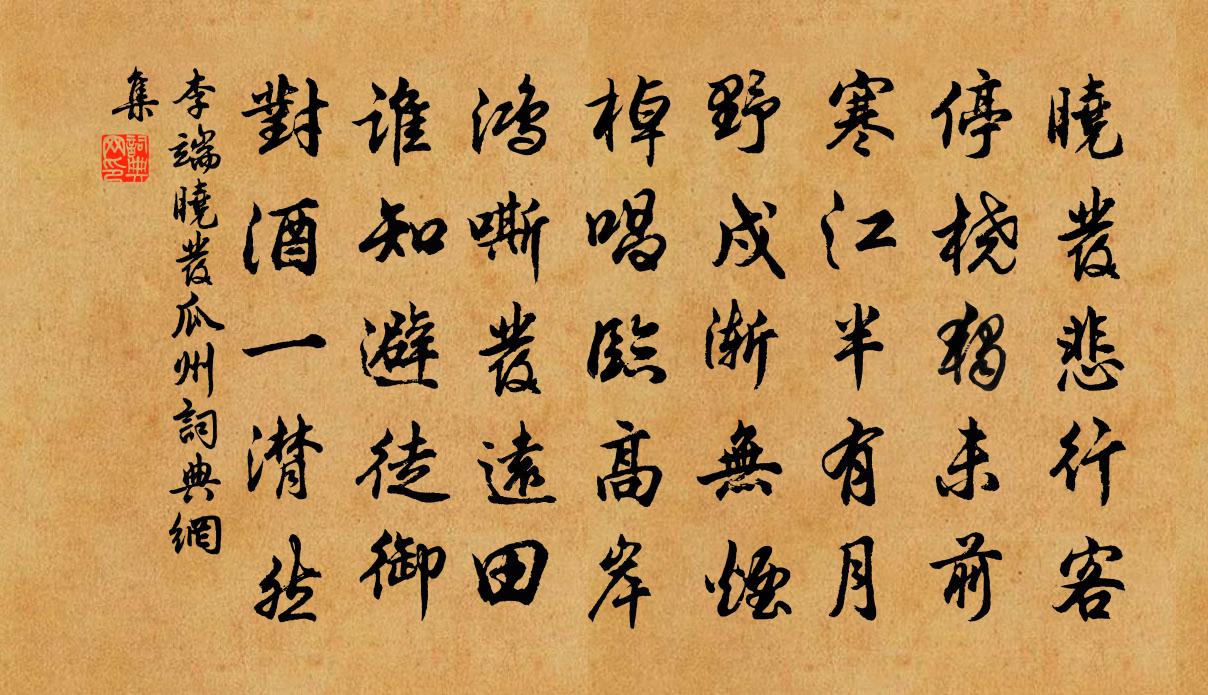 曉發悲行客
停桡獨未前
寒江半有月
野戍漸無煙
棹唱臨高岸
鴻嘶發遠田
誰知避徒御
對酒一潸然
李端曉發瓜州詞典網
集
詞典
网印